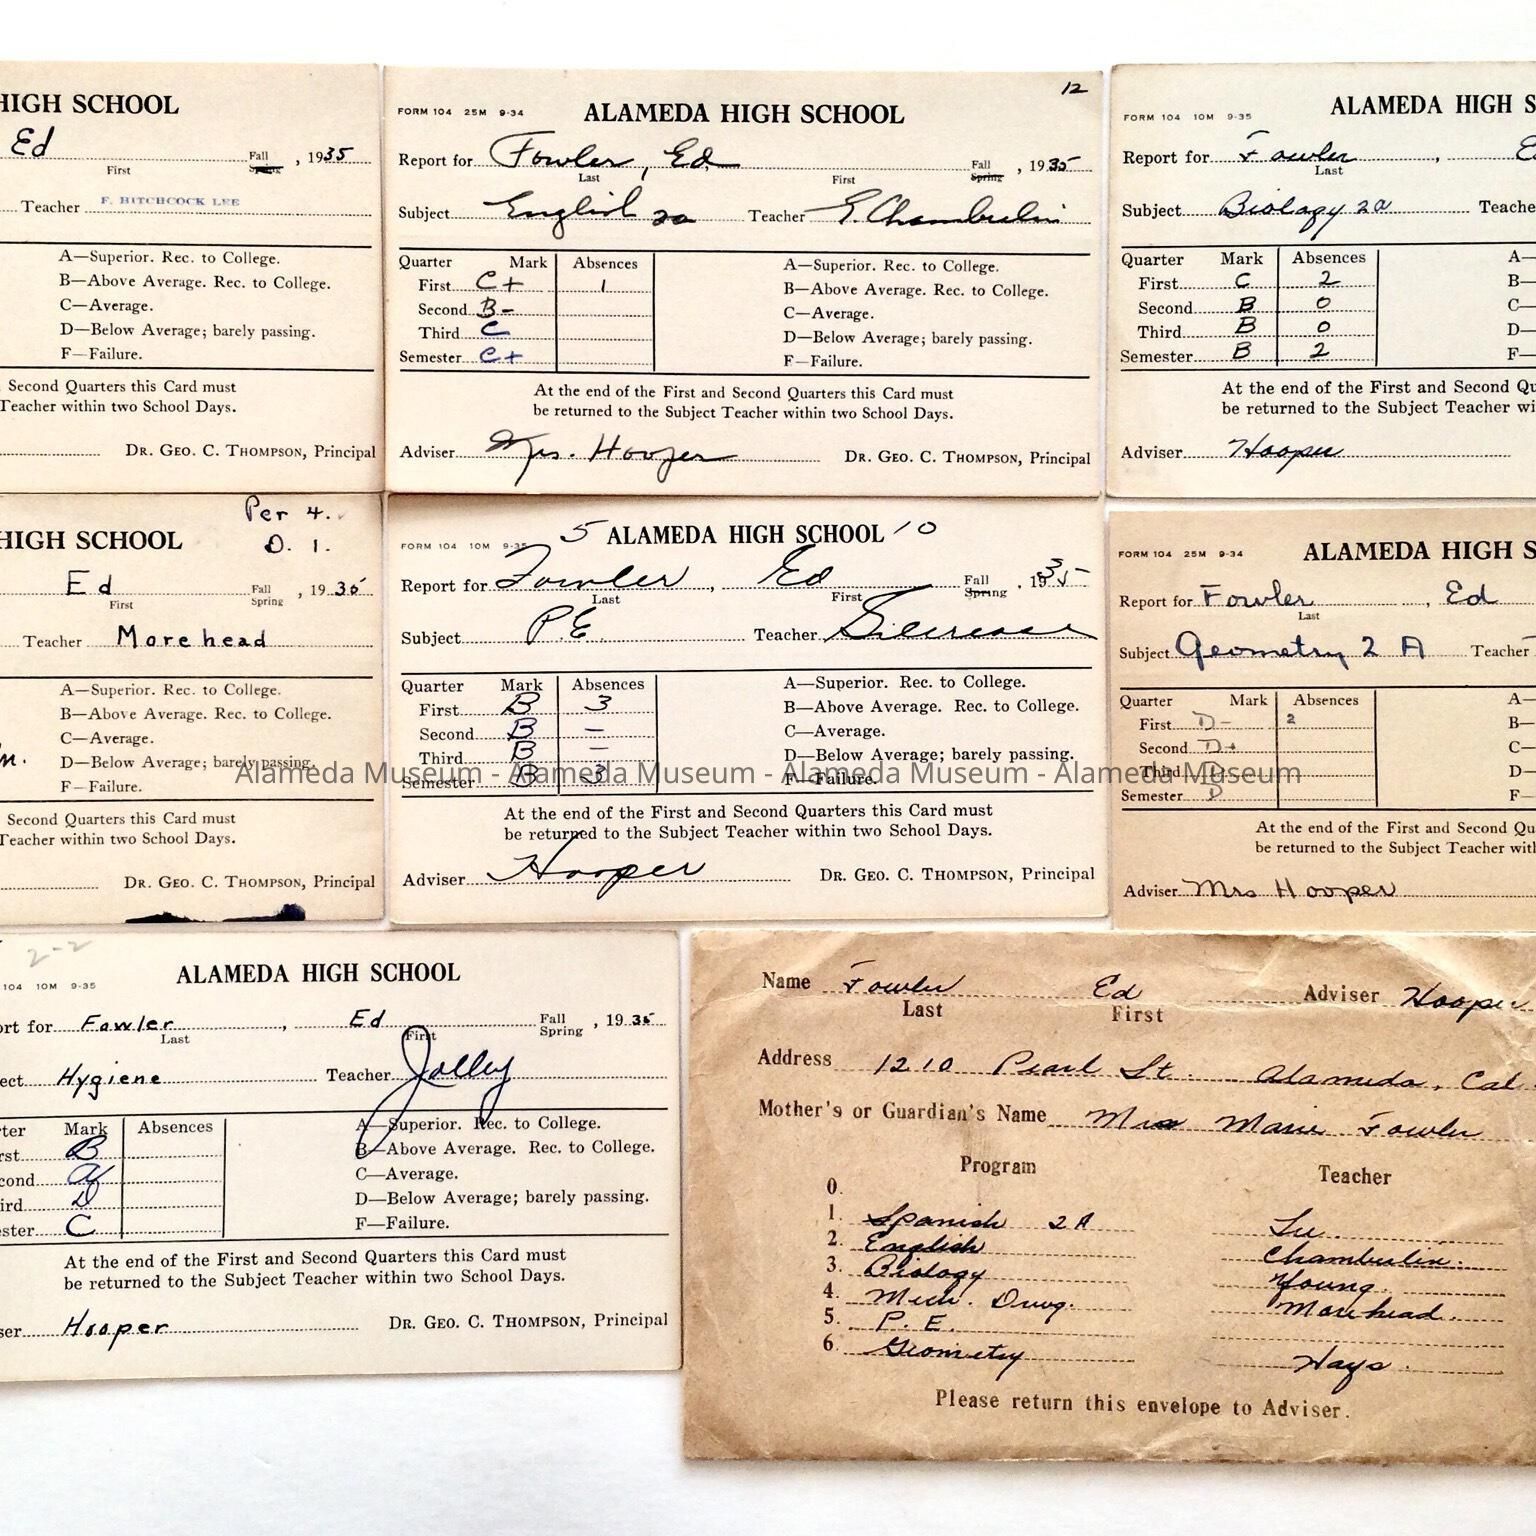 HIGH SCHOOL
Ed
First
Fall
Spring
, 1935
Teacher F. HITCHCOCK LEE
A—Superior. Rec. to College.
B—Above Average. Rec. to College.
C—Average.
D—Below Average; barely passing.
F—Failure.
Second Quarters this Card must
Teacher within two School Days.
DR. GEO. C. THOMPSON, Principal
12
FORM 104 25M 9-34 ALAMEDA HIGH SCHOOL
Report for Fowler, Ed
Last First
Fall
Spring
, 1935
Subject English 2a Teacher E. Chamberlin
Quarter Mark Absences
First C+ 1
Second B-
Third C
Semester C+
A—Superior. Rec. to College.
B—Above Average. Rec. to College.
C—Average.
D—Below Average; barely passing.
F—Failure.
At the end of the First and Second Quarters this Card must
be returned to the Subject Teacher within two School Days.
Adviser Mrs. Hooper DR. GEO. C. THOMPSON, Principal
FORM 104 10M 9-35 ALAMEDA HIGH S
Report for Fowler, E
Last
Subject Biology 2a Teache
Quarter Mark Absences
First C 2
Second B 0
Third B 0
Semester B 2
A—
B—
C—
D—
F—
At the end of the First and Second Qu
be returned to the Subject Teacher wi
Adviser Hooper
Per 4.
D. 1.
HIGH SCHOOL
Ed
First
Fall
Spring
, 1935
Teacher Morehead
A—Superior. Rec. to College.
B—Above Average. Rec. to College.
C—Average.
D—Below Average; barely passing.
F—Failure.
Second Quarters this Card must
Teacher within two School Days.
DR. GEO. C. THOMPSON, Principal
FORM 104 10M 9-35 5 ALAMEDA HIGH SCHOOL 10
Report for Fowler, Ed
Last First
Fall
Spring
, 1935
Subject P.E. Teacher
Quarter Mark Absences
First B 3
Second B —
Third B —
Semester B 3
A—Superior. Rec. to College.
B—Above Average. Rec. to College.
C—Average.
D—Below Average; barely passing.
F—Failure.
At the end of the First and Second Quarters this Card must
be returned to the Subject Teacher within two School Days.
Adviser Hooper DR. GEO. C. THOMPSON, Principal
FORM 104 25M 9-34 ALAMEDA HIGH S
Report for Fowler, Ed
Last
Subject Geometry 2 A Teacher
Quarter Mark Absences
First D- 2
Second D+
Third D
Semester D
A—
B—
C—
D—
F—
At the end of the First and Second Qu
be returned to the Subject Teacher with
Adviser Mrs Hooper
Alameda Museum - Alameda Museum - Alameda Museum - Alameda Museum
2-2
104 10M 9-35 ALAMEDA HIGH SCHOOL
ort for Fowler, Ed
Last First
Fall
Spring
, 1935
ect Hygiene Teacher Jolley
rter Mark Absences
rst B
cond
ird D
ester C
A—Superior. Rec. to College.
B—Above Average. Rec. to College.
C—Average.
D—Below Average; barely passing.
F—Failure.
At the end of the First and Second Quarters this Card must
be returned to the Subject Teacher within two School Days.
ser Hooper DR. GEO. C. THOMPSON, Principal
Name Fowler Ed Adviser Hooper
Last First
Address 1210 Pearl St. Alameda, Cal.
Mother's or Guardian's Name Mrs Marie Fowler
Program Teacher
0.
1. Spanish 2A Lee
2. English Chamberlin.
3. Biology Young.
4. Mech. Drwg. Morehead.
5. P. E.
6. Geometry Hays.
Please return this envelope to Adviser.